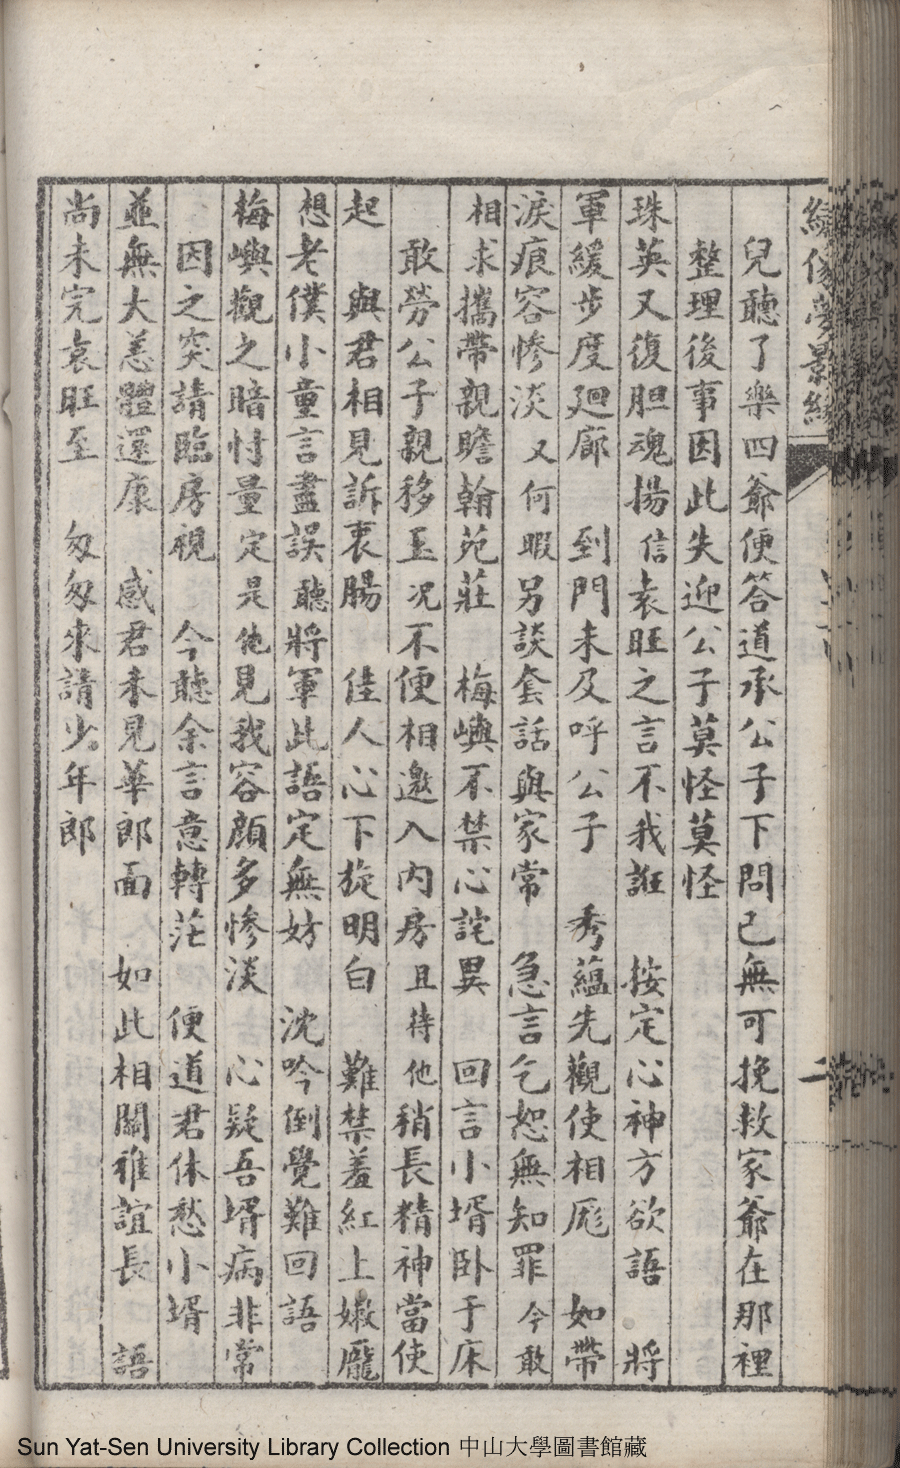 繡像夢影緣
二
兒聽了樂四爺便答道承公子下問已無可挽救家爺在那裡
整理後事因此失迎公子莫怪莫怪
珠英又復胆魂揚信袁旺之言不我誑　按定心神方欲語　將
軍緩步度廻廊　到門未及呼公子　秀蘊先觀使相厖　如帶
淚痕容慘淡又何暇另談套話與家常　急言乞恕無知罪今敢
相求攜帶親瞻翰苑莊　梅嶼不禁心詫異　回言小壻卧于床
敢勞公子親移玉况不便相邀入內房且待他稍長精神當使
起　與君相見訴衷腸　佳人心下旋明白　難禁羞紅上嫩龐
想老僕小童言盡誤聽將軍此語定無妨　沈吟倒覺難回語
梅嶼觀之暗忖量定是他見我容顏多慘淡　心疑吾壻病非常
因之突請臨房視　今聽余言意轉茫　便道君休愁小壻
並無大恙體還康　感君未見華郎面　如此相關雅誼長　語
尚未完袁旺至　匆匆來請少年郎
Sun Yat-Sen University Library Collection 中山大學圖書館藏